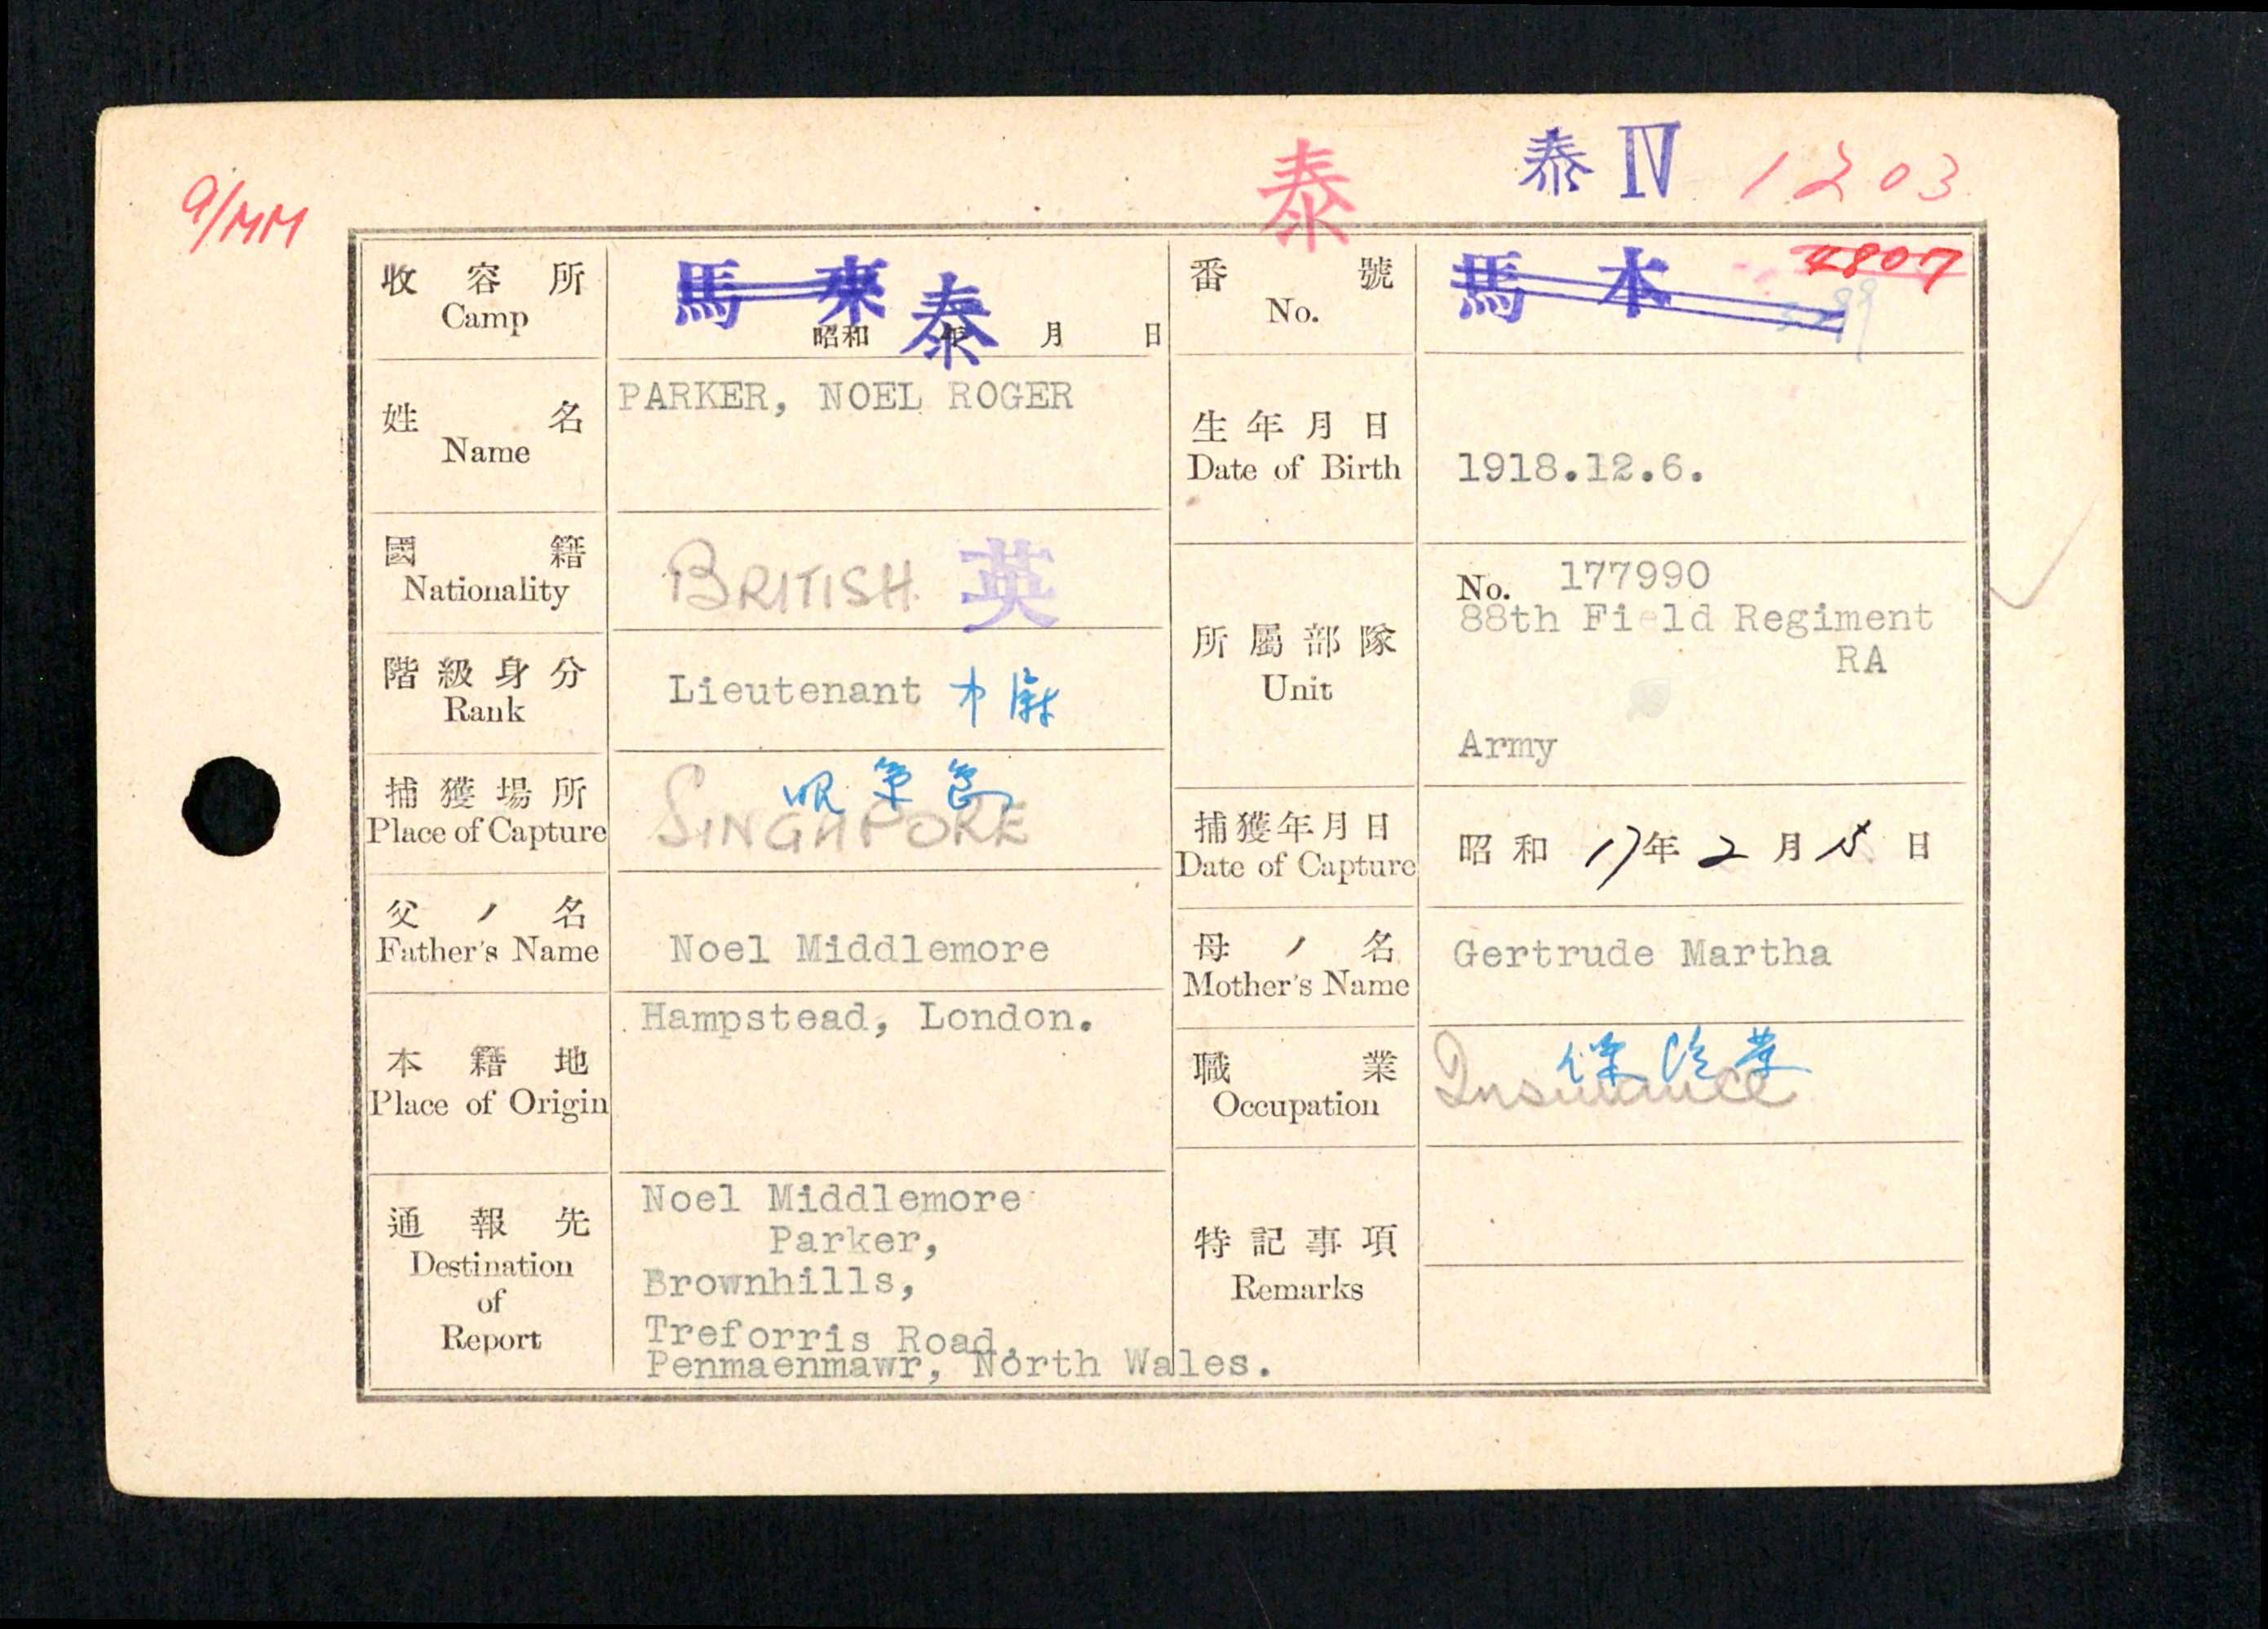 泰 泰 IV 1203
9/MM
收容所 馬来 泰 番號 馬本 4807
Camp 昭和 年 月 日 No.
姓名 PARKER, NOEL ROGER 生年月日
Name Date of Birth 1918.12.6.
國籍 BRITISH 英 No. 177990
Nationality 88th Field Regiment
所屬部隊 RA
階級身分 Lieutenant 中尉 Unit
Rank Army
捕獲場所 昭南島 捕獲年月日 昭和 17年 2月 15日
Place of Capture SINGAPORE Date of Capture
父ノ名 Noel Middlemore 母ノ名 Gertrude Martha
Father's Name Mother's Name
本籍地 Hampstead, London. 職業 保险業
Place of Origin Occupation Insurance
通報先 Noel Middlemore
Destination Parker, 特記事項
of Brownhills, Remarks
Report Treforris Road,
Penmaenmawr, North Wales.